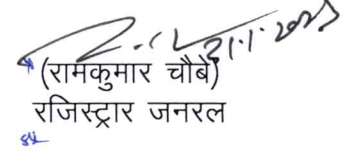 21.1.2023
(रामकुमार चौबे)
रजिस्ट्रार जनरल